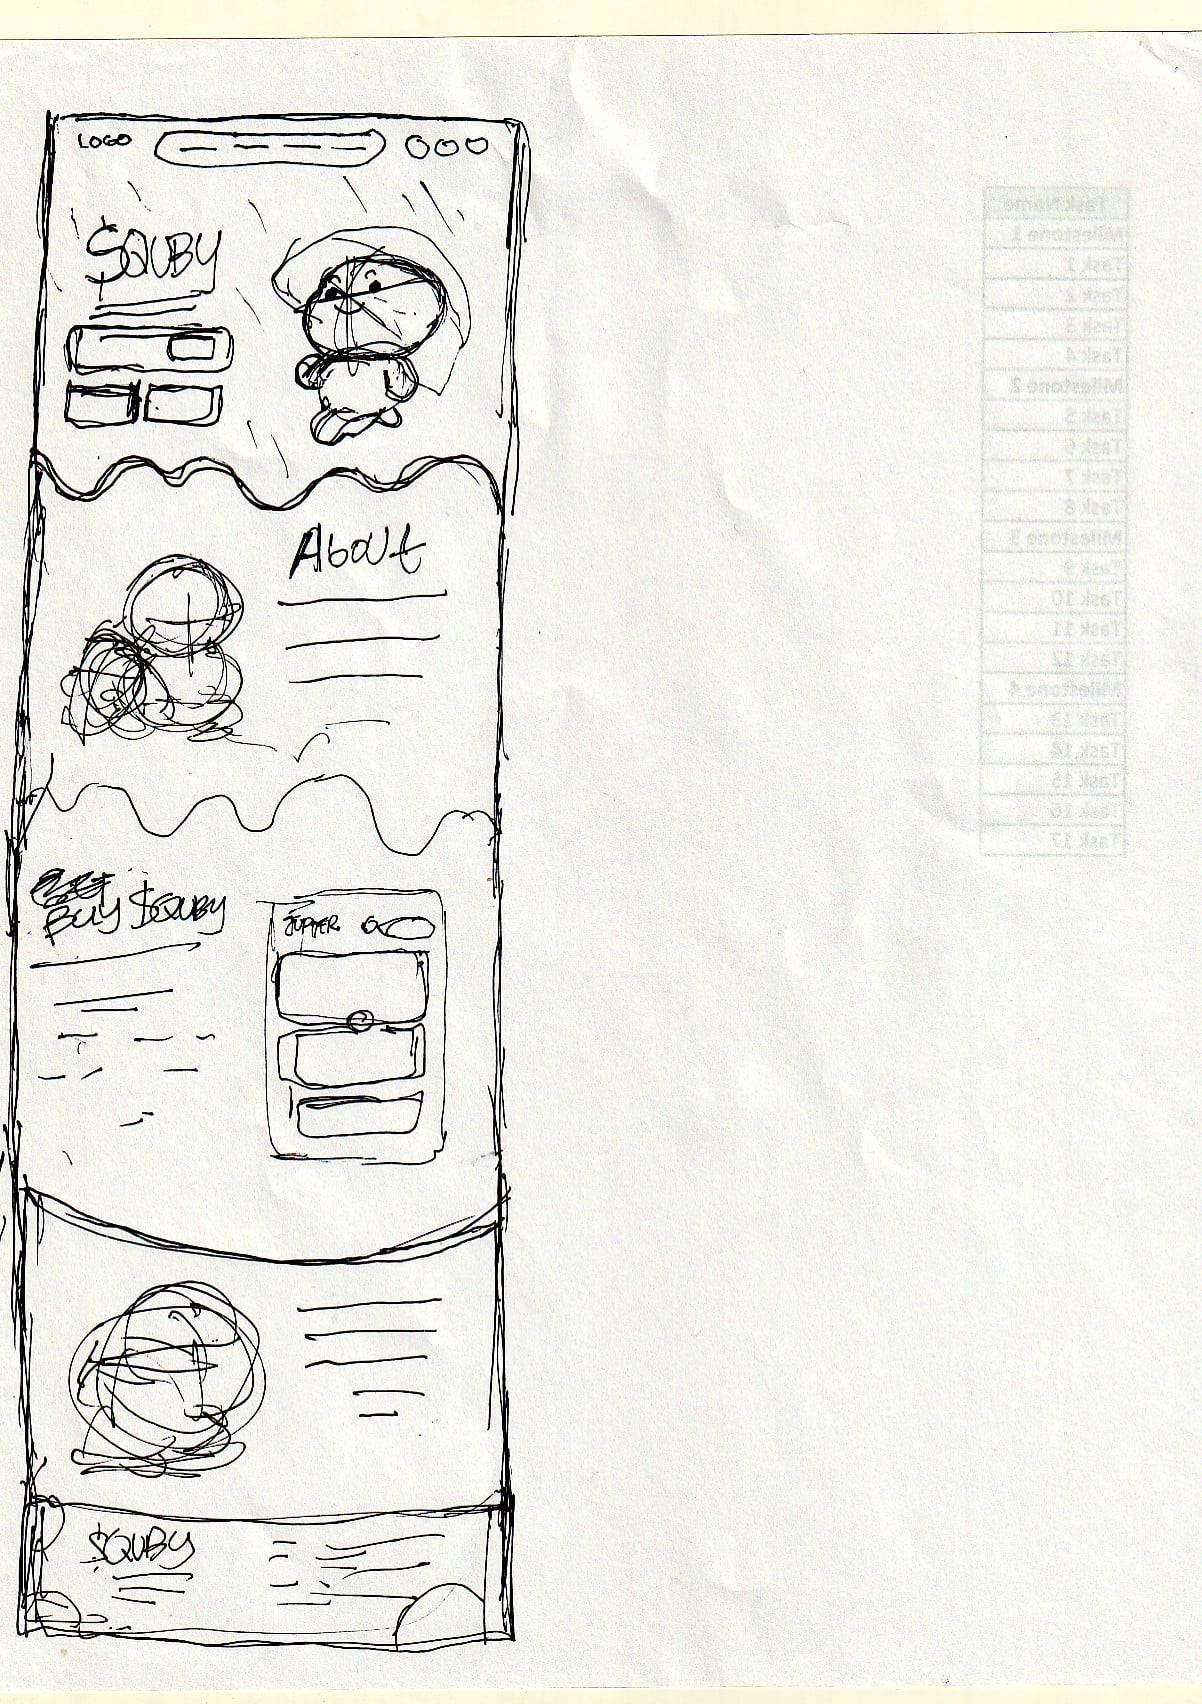 LOGO
$QUBY
About
BUY $QUBY
JUPITER
$QUBY
Task Name
Milestone 1
Task 1
Task 2
Task 3
Task 4
Milestone 2
Task 5
Task 6
Task 7
Task 8
Milestone 3
Task 9
Task 10
Task 11
Task 12
Milestone 4
Task 13
Task 14
Task 15
Task 16
Task 17